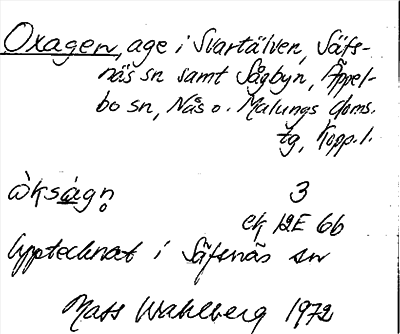 Oxagen, age i Svartälven, Säfs-
näs sn samt Sågbyn, Äppel-
bo sn, Nås o. Malungs doms.
tg, Kopp. l.
òksàgn̥ 3
ek 12E 6b
Upptecknat i Säfsnäs sn
Mats Wahlberg 1972